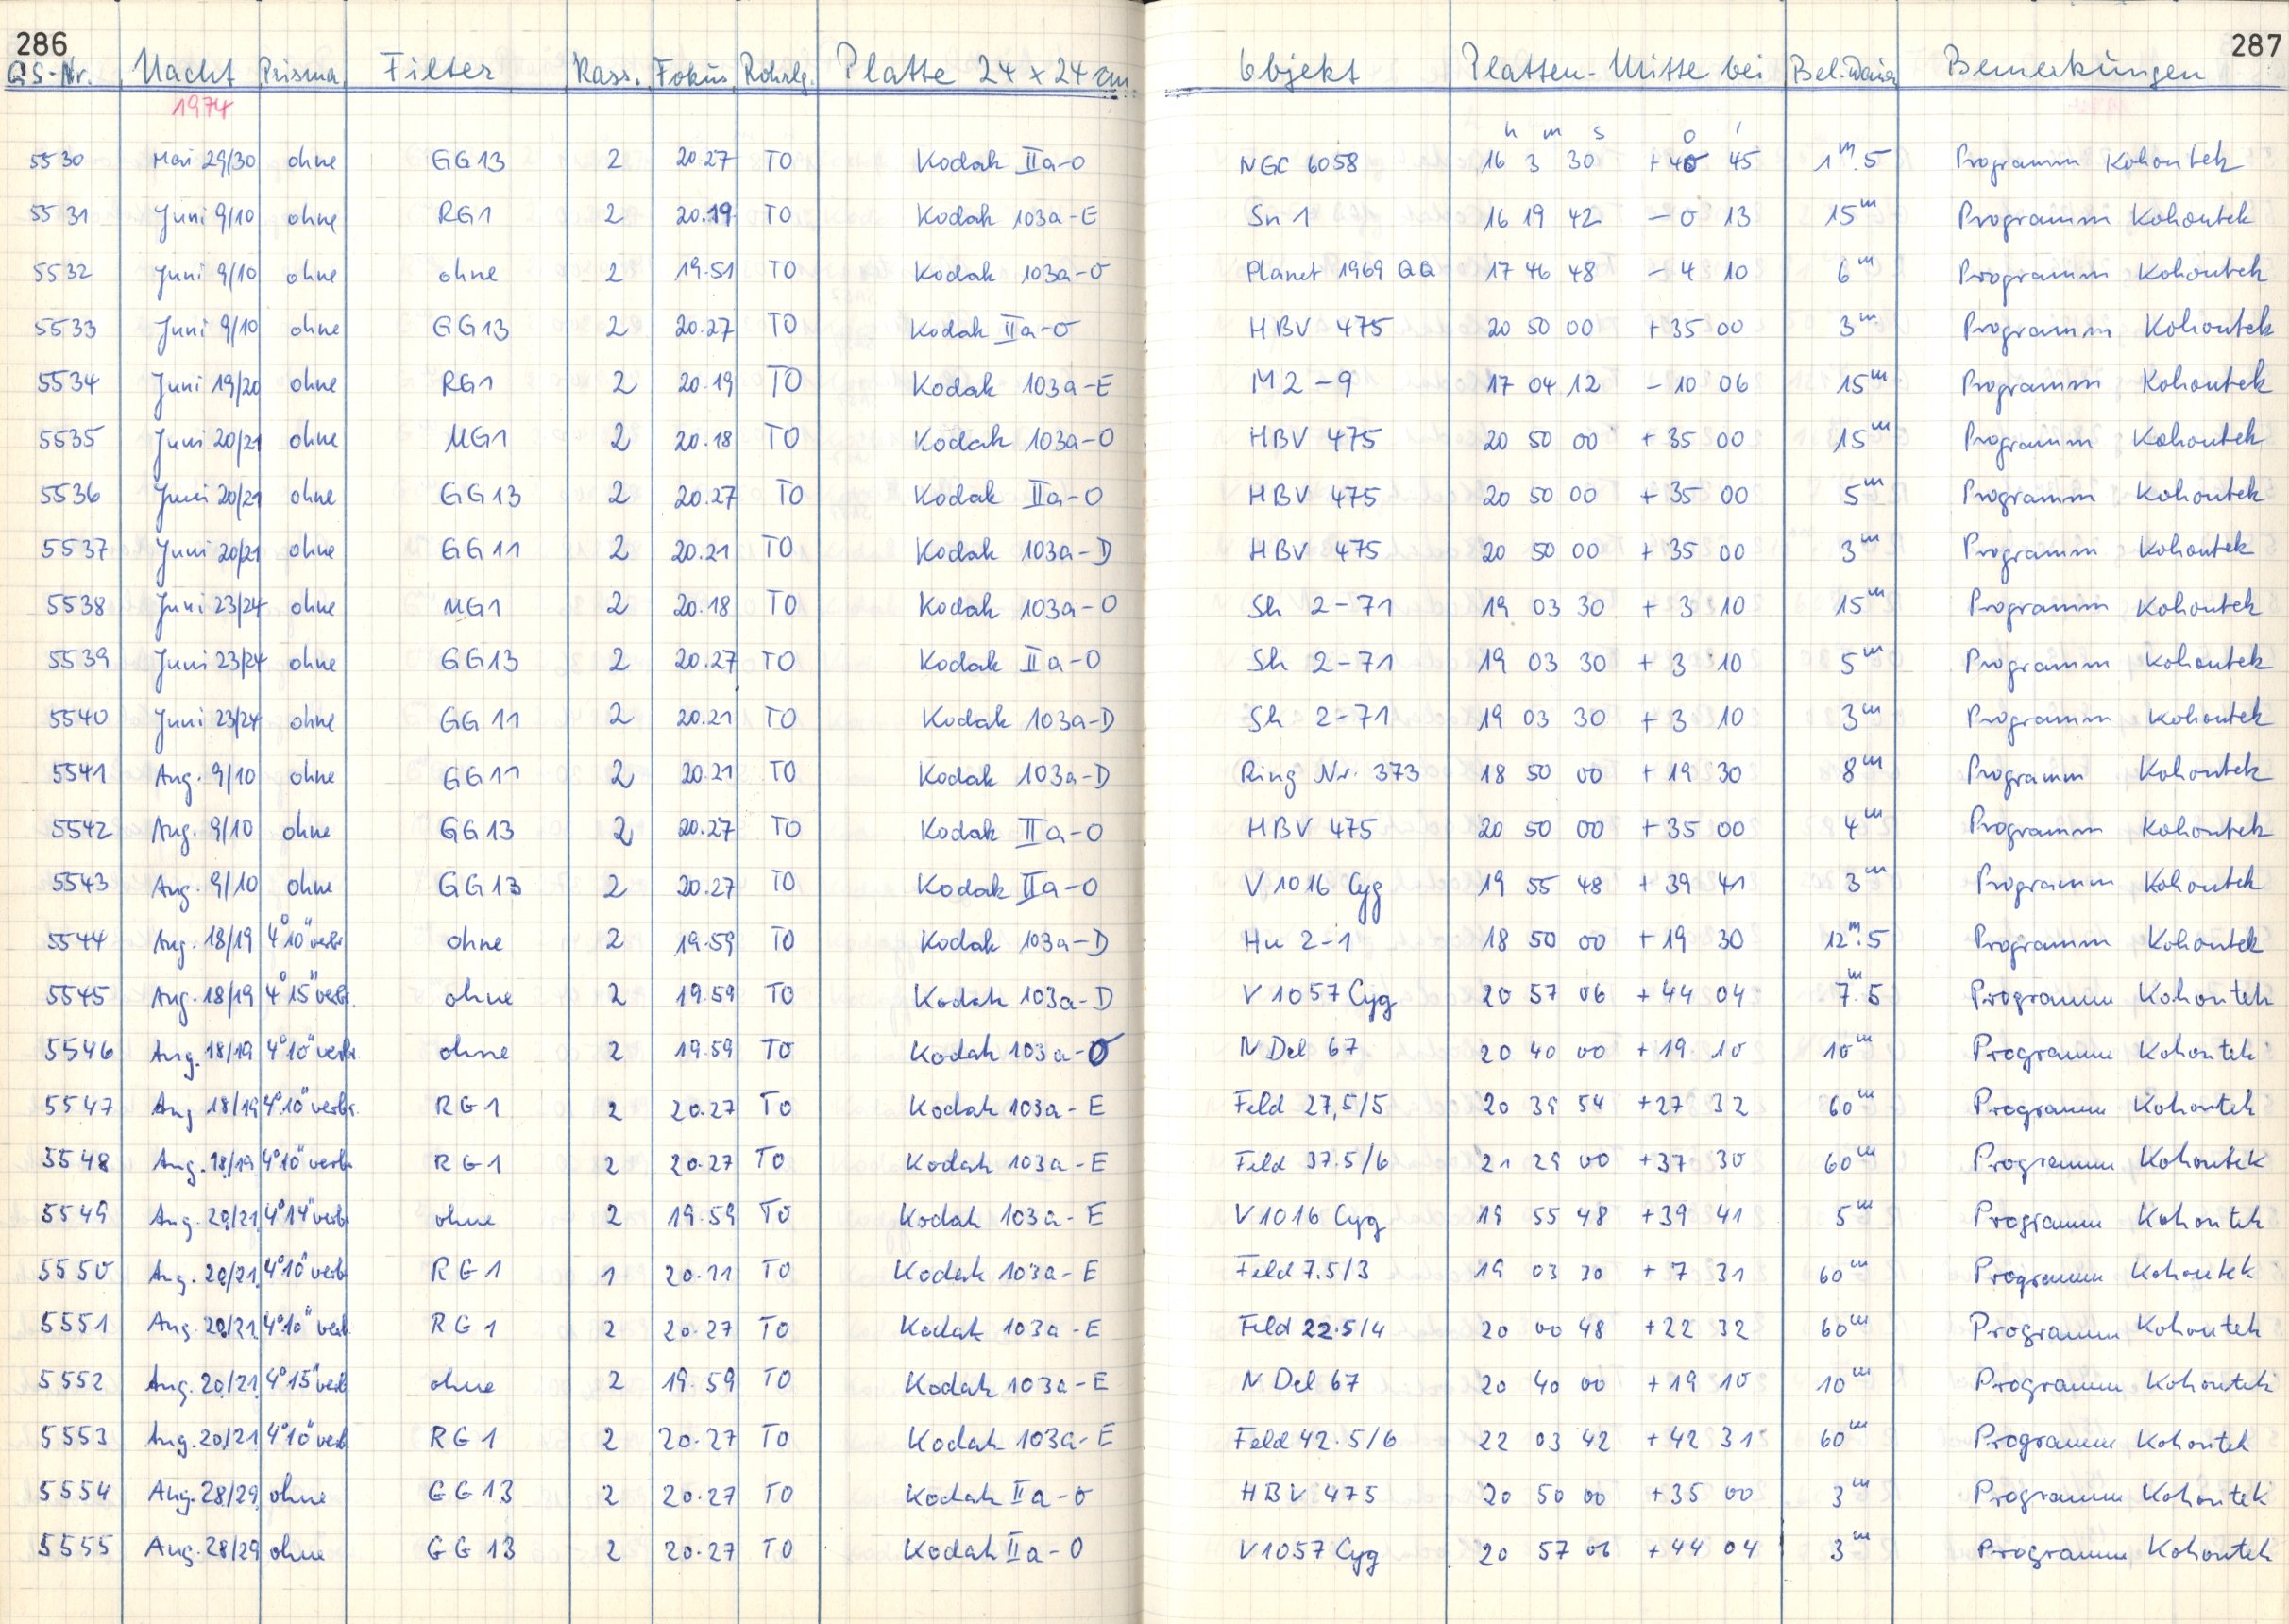 286 287
GS-Nr. Nacht Prisma Filter Kass. Fokus Rohrlg. Platte 24 x 24 cm Objekt Platten-Mitte bei Bel.dauer Bemerkungen
1974
h m s o '
5530 Mai 29/30 ohne GG13 2 20.27 TO Kodak IIa-O NGC 6058 16 3 30 +40 45 1m.5 Programm Kohoutek
5531 Juni 9/10 ohne RG1 2 20.19 TO Kodak 103a-E Sn 1 16 19 42 -0 13 15m Programm Kohoutek
5532 Juni 9/10 ohne ohne 2 19.51 TO Kodak 103a-O Planet 1969 QA 17 46 48 -4 10 6m Programm Kohoutek
5533 Juni 9/10 ohne GG13 2 20.27 TO Kodak IIa-O HBV 475 20 50 00 +35 00 3m Programm Kohoutek
5534 Juni 19/20 ohne RG1 2 20.19 TO Kodak 103a-E M2-9 17 04 12 -10 06 15m Programm Kohoutek
5535 Juni 20/21 ohne UG1 2 20.18 TO Kodak 103a-O HBV 475 20 50 00 +35 00 15m Programm Kohoutek
5536 Juni 20/21 ohne GG13 2 20.27 TO Kodak IIa-O HBV 475 20 50 00 +35 00 5m Programm Kohoutek
5537 Juni 20/21 ohne GG11 2 20.21 TO Kodak 103a-D HBV 475 20 50 00 +35 00 3m Programm Kohoutek
5538 Juni 23/24 ohne UG1 2 20.18 TO Kodak 103a-O Sh 2-71 19 03 30 +3 10 15m Programm Kohoutek
5539 Juni 23/24 ohne GG13 2 20.27 TO Kodak IIa-O Sh 2-71 19 03 30 +3 10 5m Programm Kohoutek
5540 Juni 23/24 ohne GG11 2 20.21 TO Kodak 103a-D Sh 2-71 19 03 30 +3 10 3m Programm Kohoutek
5541 Aug. 9/10 ohne GG11 2 20.21 TO Kodak 103a-D Ring Nr. 373 18 50 00 +19 30 8m Programm Kohoutek
5542 Aug. 9/10 ohne GG13 2 20.27 TO Kodak IIa-O HBV 475 20 50 00 +35 00 4m Programm Kohoutek
5543 Aug. 9/10 ohne GG13 2 20.27 TO Kodak IIa-O V1016 Cyg 19 55 48 +39 41 3m Programm Kohoutek
5544 Aug. 18/19 4°10" verbr. ohne 2 19.59 TO Kodak 103a-D Hu 2-1 18 50 00 +19 30 12m.5 Programm Kohoutek
5545 Aug. 18/19 4°15" verbr. ohne 2 19.59 TO Kodak 103a-D V1057 Cyg 20 57 06 +44 04 7m.5 Programm Kohoutek
5546 Aug. 18/19 4°10" verbr. ohne 2 19.59 TO Kodak 103a-O N Del 67 20 40 00 +19 10 10m Programm Kohoutek
5547 Aug 18/19 4°10" verbr. RG1 2 20.27 TO Kodak 103a-E Feld 27,5/5 20 39 54 +27 32 60m Programm Kohoutek
5548 Aug. 18/19 4°10" verb. RG1 2 20.27 TO Kodak 103a-E Feld 37.5/6 21 29 00 +37 30 60m Programm Kohoutek
5549 Aug. 20/21 4°14" verb. ohne 2 19.59 TO Kodak 103a-E V1016 Cyg 19 55 48 +39 41 5m Programm Kohoutek
5550 Aug. 20/21 4°10" verb RG1 1 20.21 TO Kodak 103a-E Feld 7.5/3 19 03 30 +7 31 60m Programm Kohoutek
5551 Aug. 20/21 4°10" verb. RG1 2 20.27 TO Kodak 103a-E Feld 22.5/4 20 00 48 +22 32 60m Programm Kohoutek
5552 Aug. 20/21 4°15" verb ohne 2 19.59 TO Kodak 103a-E N Del 67 20 40 00 +19 10 10m Programm Kohoutek
5553 Aug. 20/21 4°10" verb RG1 2 20.27 TO Kodak 103a-E Feld 42.5/6 22 03 42 +42 31 60m Programm Kohoutek
5554 Aug. 28/29 ohne GG13 2 20.27 TO Kodak IIa-O HBV 475 20 50 00 +35 00 3m Programm Kohoutek
5555 Aug. 28/29 ohne GG13 2 20.27 TO Kodak IIa-O V1057 Cyg 20 57 06 +44 04 3m Programm Kohoutek